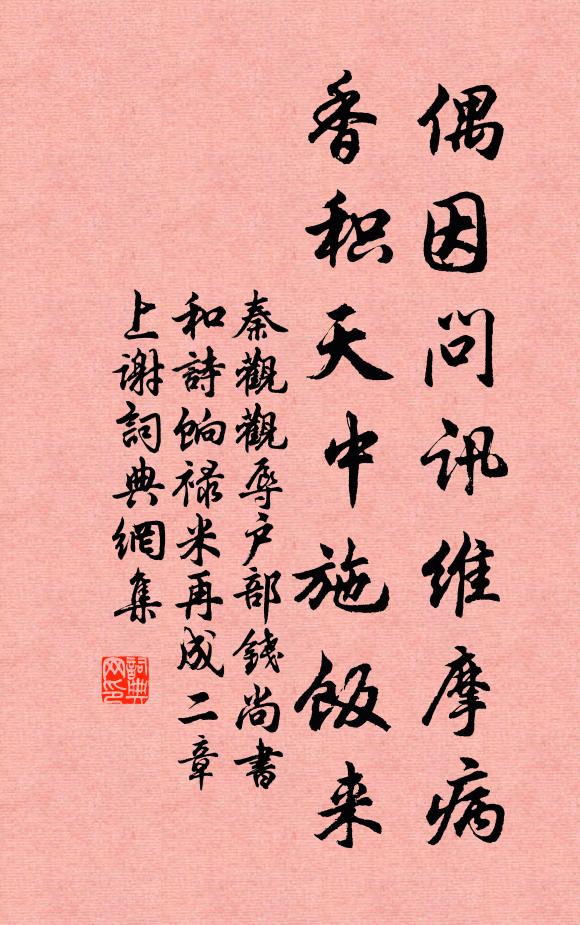 偶因問訊维摩病
香积天中施飯来
秦觀觀辱户部錢尚書
和詩餉禄米再成二章
上谢詞典網集
詞典网印